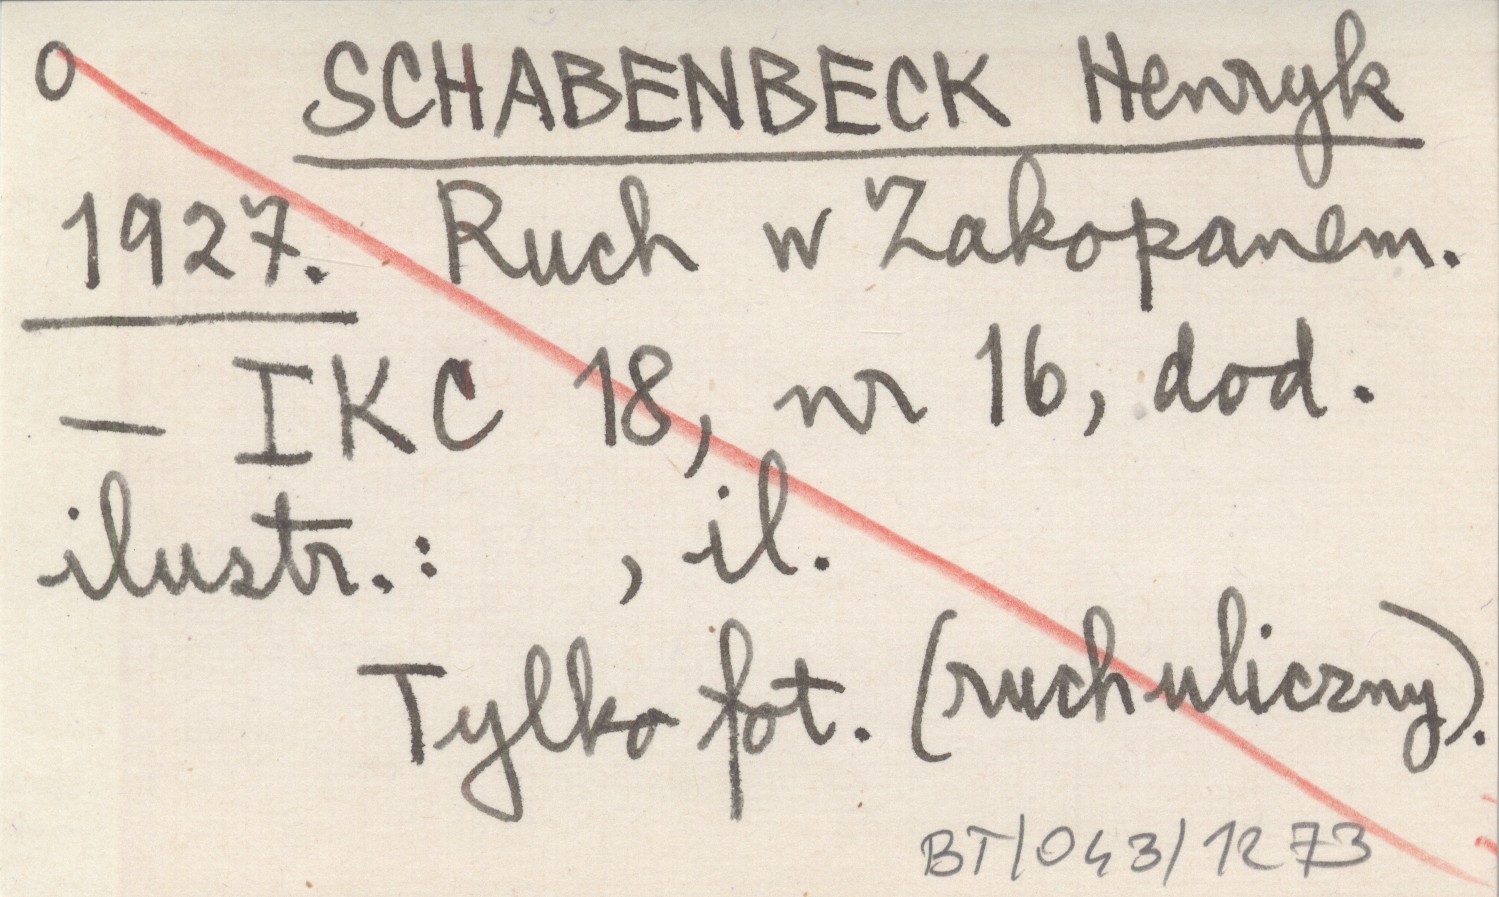 O SCHABENBECK Henryk
1927. Ruch w Zakopanem.
— IKC 18, nr 16, dod.
ilustr.: , il.
Tylko fot. (ruch uliczny).
BT/043/1273